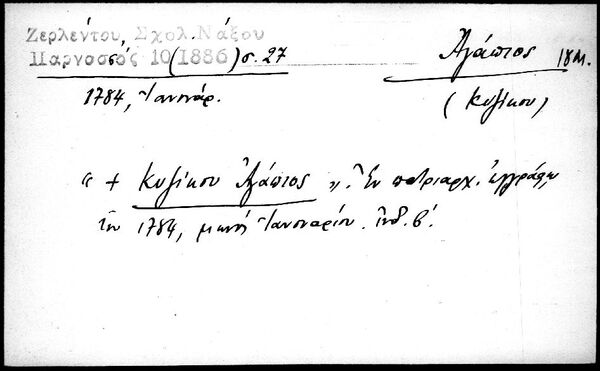 Ζερλέντου, Σχολ. Νάξου
Παρνασσός 10 (1886) σ. 27
Ἀγάπιος 18 Μ.
1784, Ἰανουάρ.
(Κυζίκου)
« + Κυζίκου Ἀγάπιος ». Ἐν πατριαρχ. ἐγγράφῳ
τοῦ 1784, μηνὶ Ἰανουαρίου. Ἰνδ. β΄.